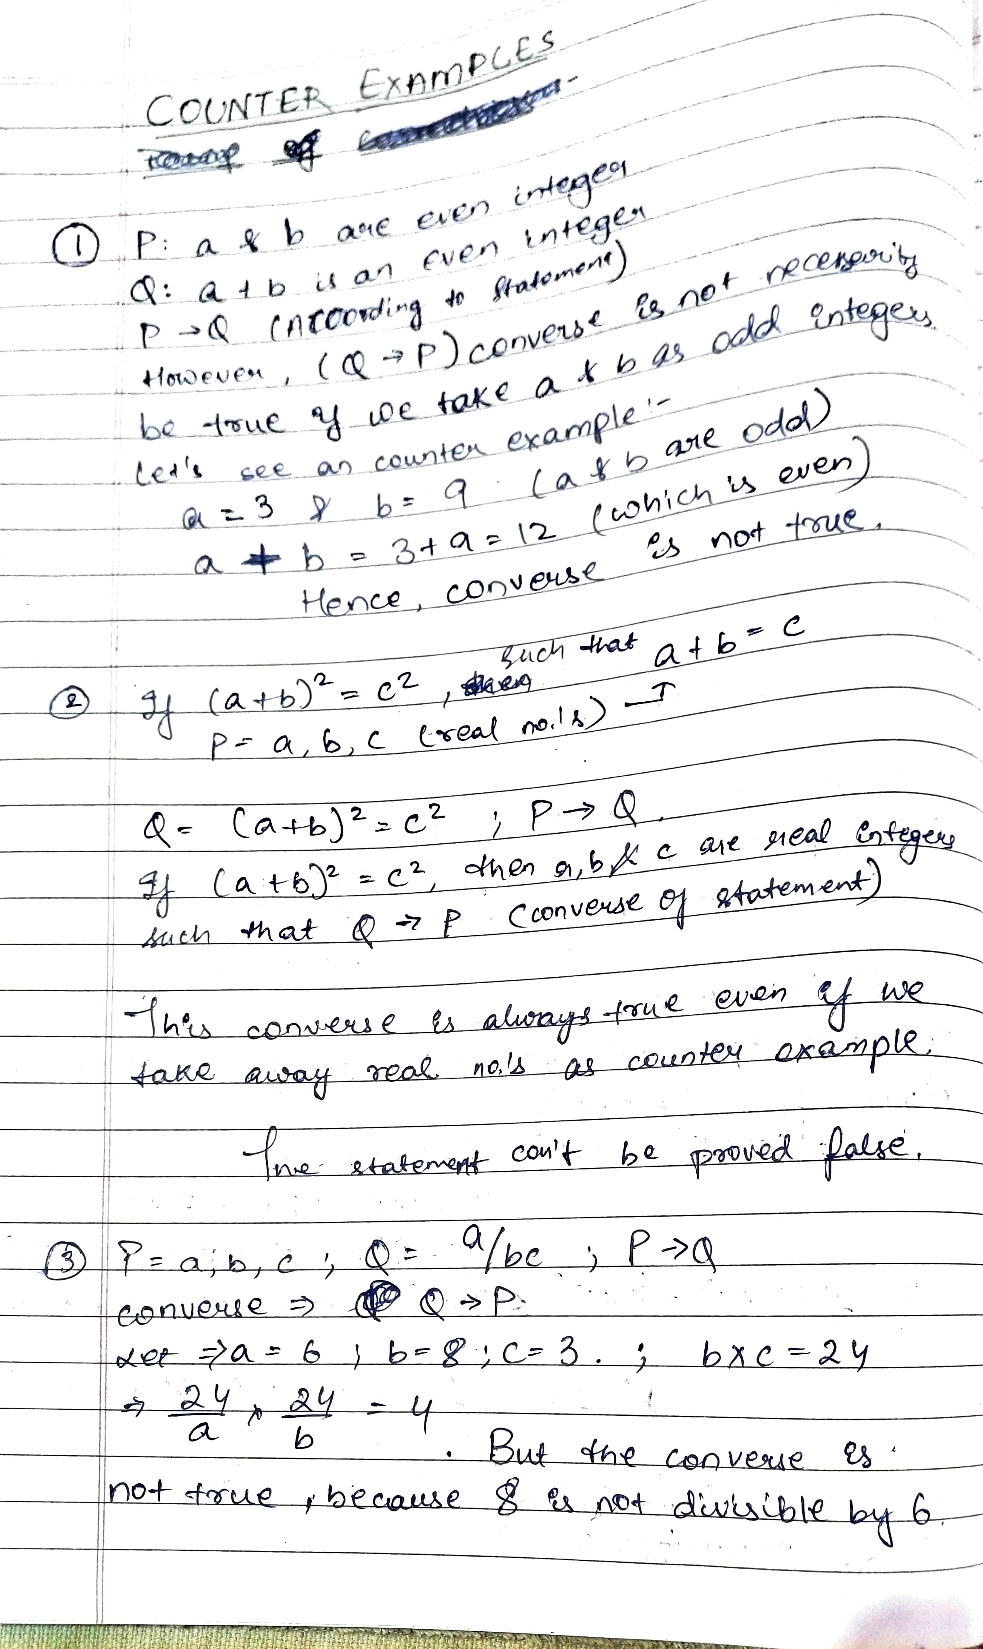 COUNTER EXAMPLES
of
① P: a & b are even integer
Q: a + b is an even integer
P → Q (According to statement)
However, (Q → P) converse is not necessarity
be true if we take a & b as odd integers.
Let's see an counter example:-
a = 3 & b = 9 (a & b are odd)
a + b = 3 + 9 = 12 (which is even)
Hence, converse is not true.
② If (a+b)² = c², such that a + b = c
P = a, b, c (real no.'s) — I
Q = (a+b)² = c² ; P → Q.
If (a+b)² = c², then a, b & c are real integers
such that Q → P (converse of statement)
This converse is always true even if we
take away real no.'s as counter example.
True statement can't be proved false.
③ P = a, b, c ; Q = a/bc ; P → Q
converse ⇒ Q → P.
Let ⇒ a = 6 ; b = 8 ; c = 3. ; b x c = 24
⇒ 24/a 24/b = 4
. But the converse is
not true, because 8 is not divisible by 6.